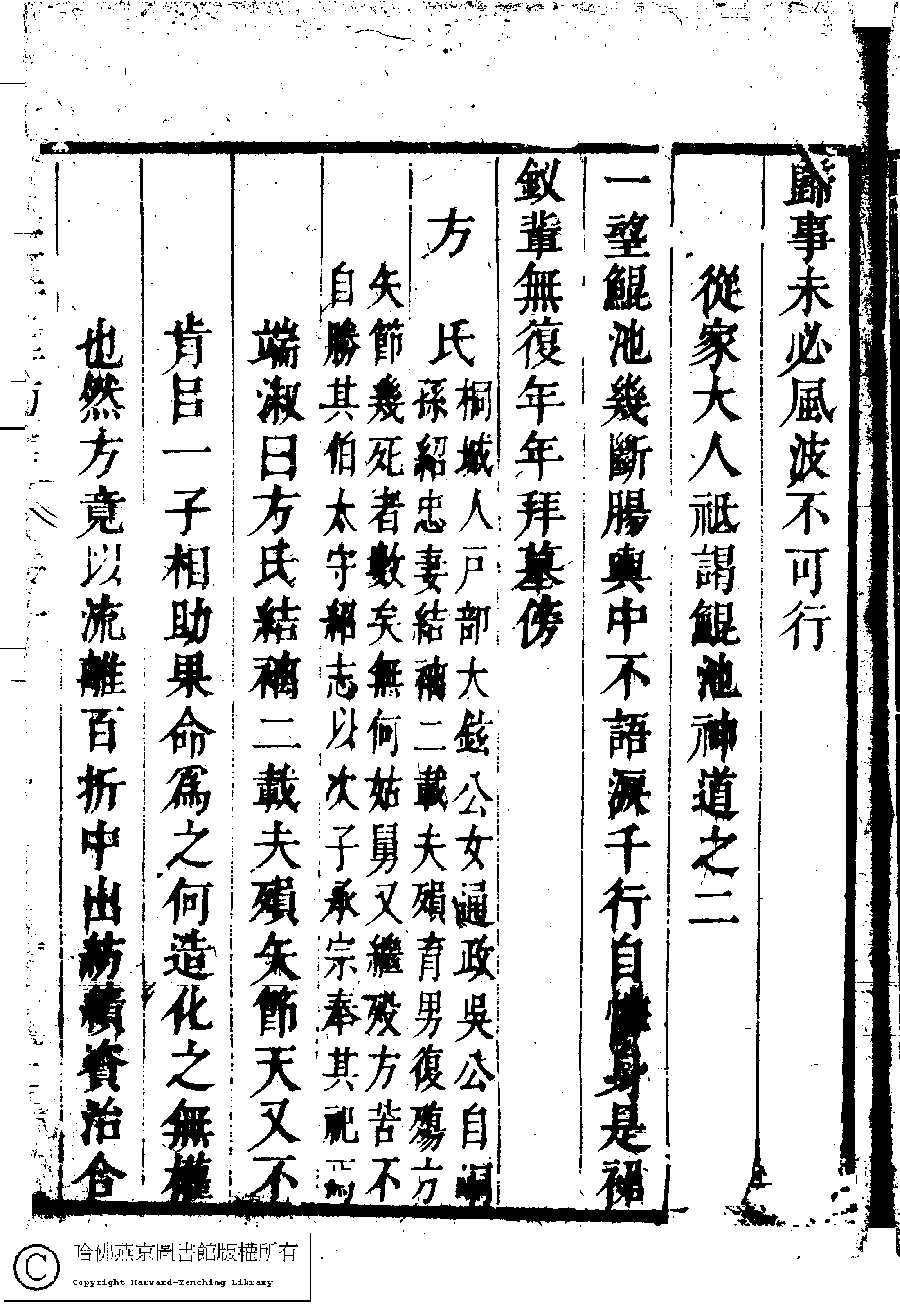 歸事未必風波不可行
從家大人祗謁鯤池神道之二
一望鯤池幾斷腸輿中不語淚千行自憐身是裙
釵輩無復年年拜墓傍
方氏
桐城人戸部大鉉公女通政吳公自峒
孫紹忠妻結褵二載夫殞育男復殤方
矢節幾死者數矣無何姑舅又繼歿方苦不
自勝其伯太守紹志以次子承宗奉其祀
端淑曰方氏結褵二載夫殞矢節天又不
肯㠯一子相助果命爲之何造化之無權
也然方竟以流離百折中出紡績資治含
哈佛燕京圖書館版權所有
Copyright Harvard-Yenching Library